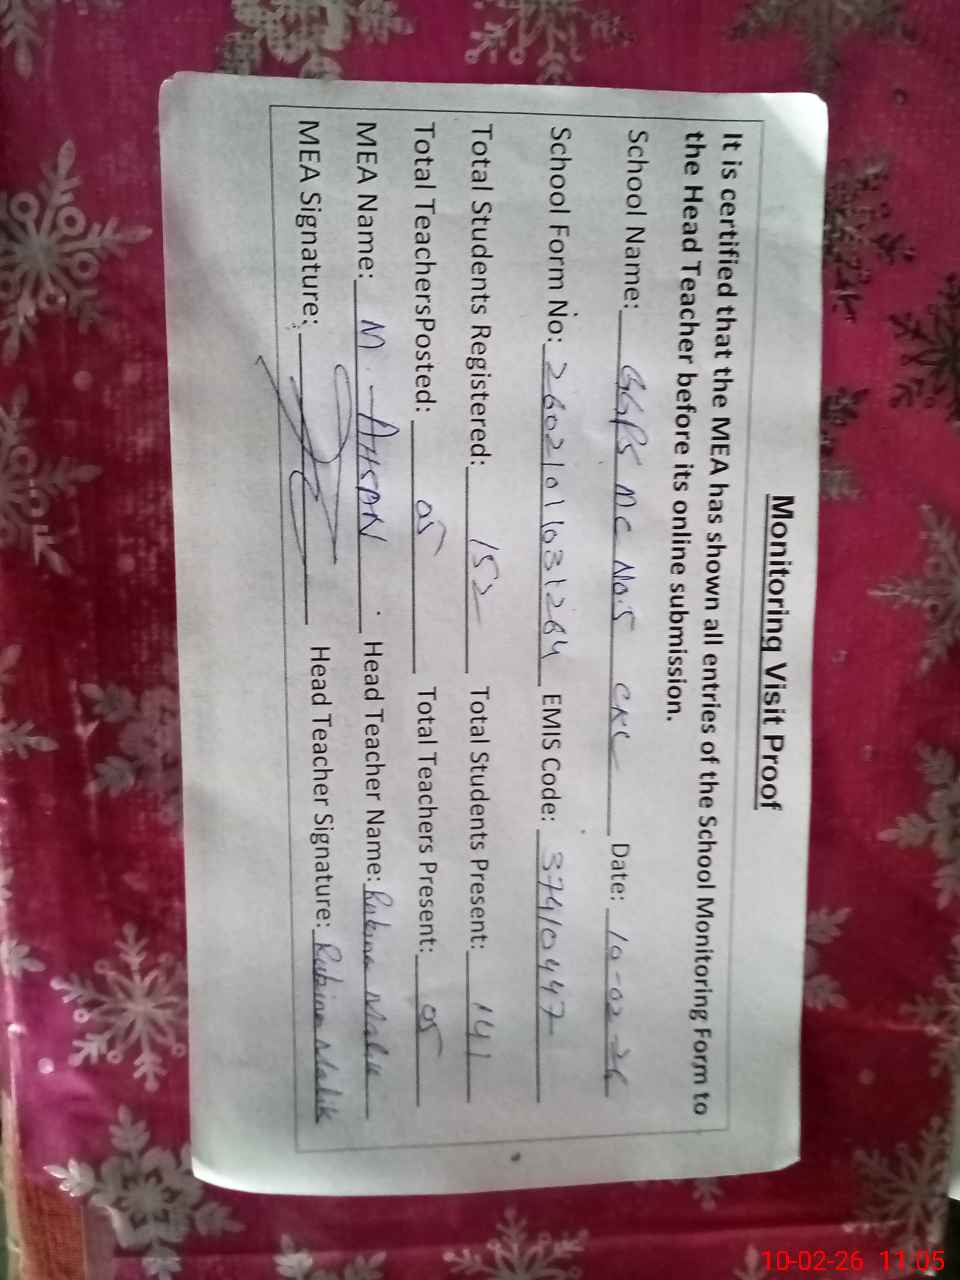 Monitoring Visit Proof
It is certified that the MEA has shown all entries of the School Monitoring Form to
the Head Teacher before its online submission.
School Name: GGPS MC No.5 CKL Date: 10-02-26
School Form No: 26021011031264 EMIS Code: 37410447
Total Students Registered: 152 Total Students Present: 141
Total TeachersPosted: 05 Total Teachers Present: 05
MEA Name: M. AHSAN Head Teacher Name: Rubina Malik
MEA Signature: Head Teacher Signature: Rubina Malik
10-02-26 11:05